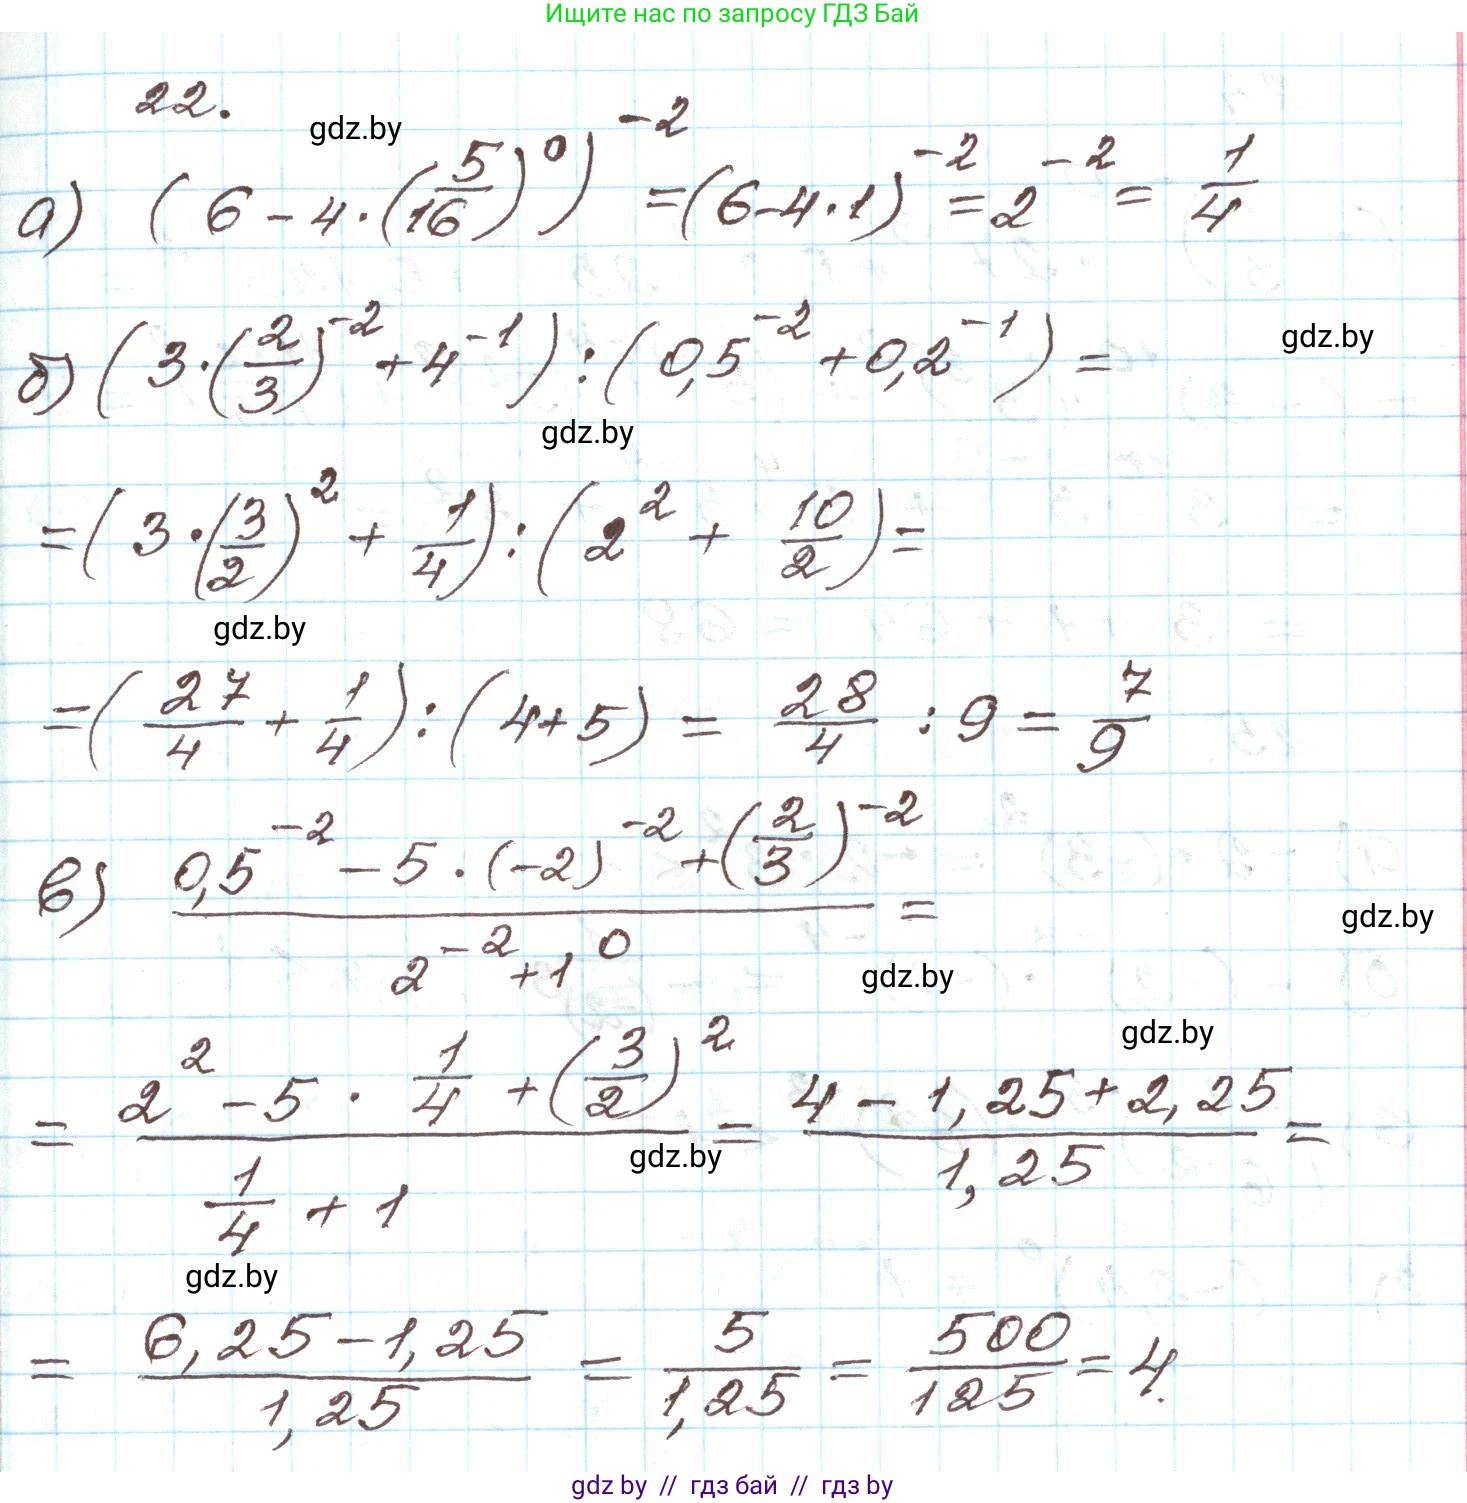 Ищите нас по запросу ГДЗ Бай
22.
gdz.by
а) (6 - 4 · (5/16)^0)^-2 = (6 - 4 · 1)^-2 = 2^-2 = 1/4
б) (3 · (2/3)^-2 + 4^-1) : (0,5^-2 + 0,2^-1) =
gdz.by
gdz.by
= (3 · (3/2)^2 + 1/4) : (2^2 + 10/2) =
gdz.by
= (27/4 + 1/4) : (4 + 5) = 28/4 : 9 = 7/9
в) (0,5^-2 - 5 · (-2)^-2 + (2/3)^-2) / (2^-2 + 1^0) =
gdz.by
gdz.by
gdz.by
= (2^2 - 5 · 1/4 + (3/2)^2) / (1/4 + 1) = (4 - 1,25 + 2,25) / 1,25 =
gdz.by
gdz.by
= (6,25 - 1,25) / 1,25 = 5/1,25 = 500/125 = 4.
gdz by // гдз бай // gdz by